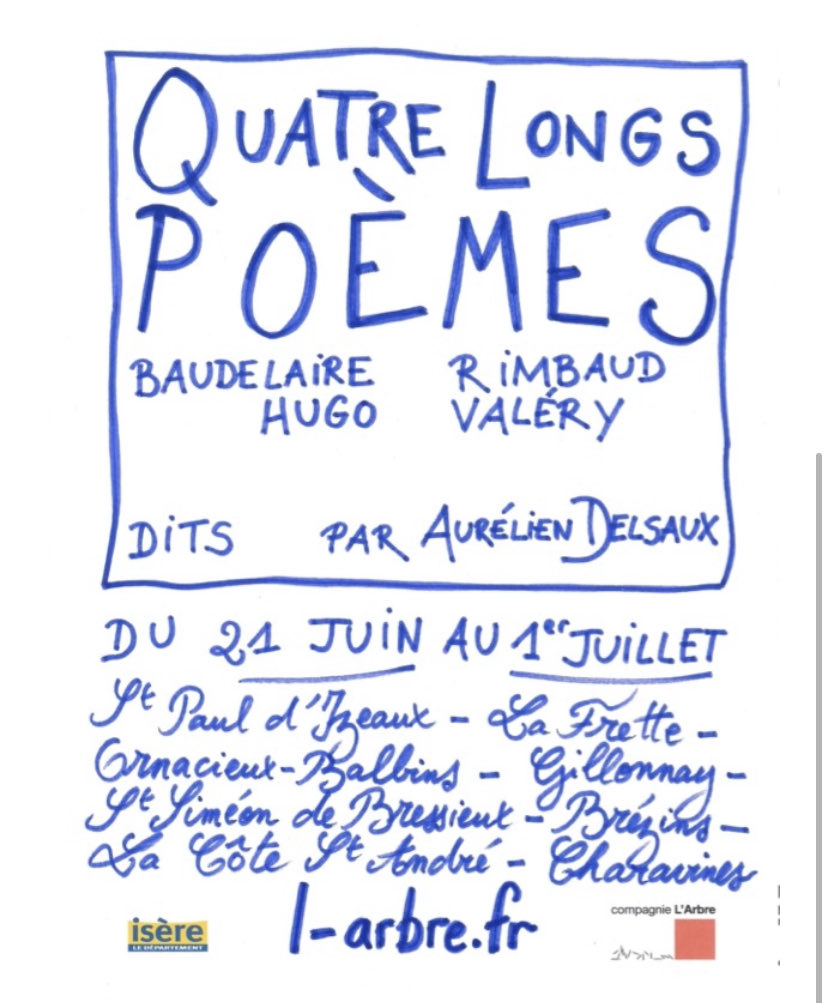 QUATRE LONGS
POÈMES
BAUDELAIRE RIMBAUD
HUGO VALÉRY
DITS PAR AURÉLIEN DELSAUX
DU 21 JUIN AU 1er JUILLET
St Paul d'Izeaux - La Frette -
Ornacieux-Balbins - Gillonnay -
St Siméon de Bressieux - Brézins -
La Côte St André - Charavines
l-arbre.fr
isère
LE DÉPARTEMENT
compagnie L'Arbre